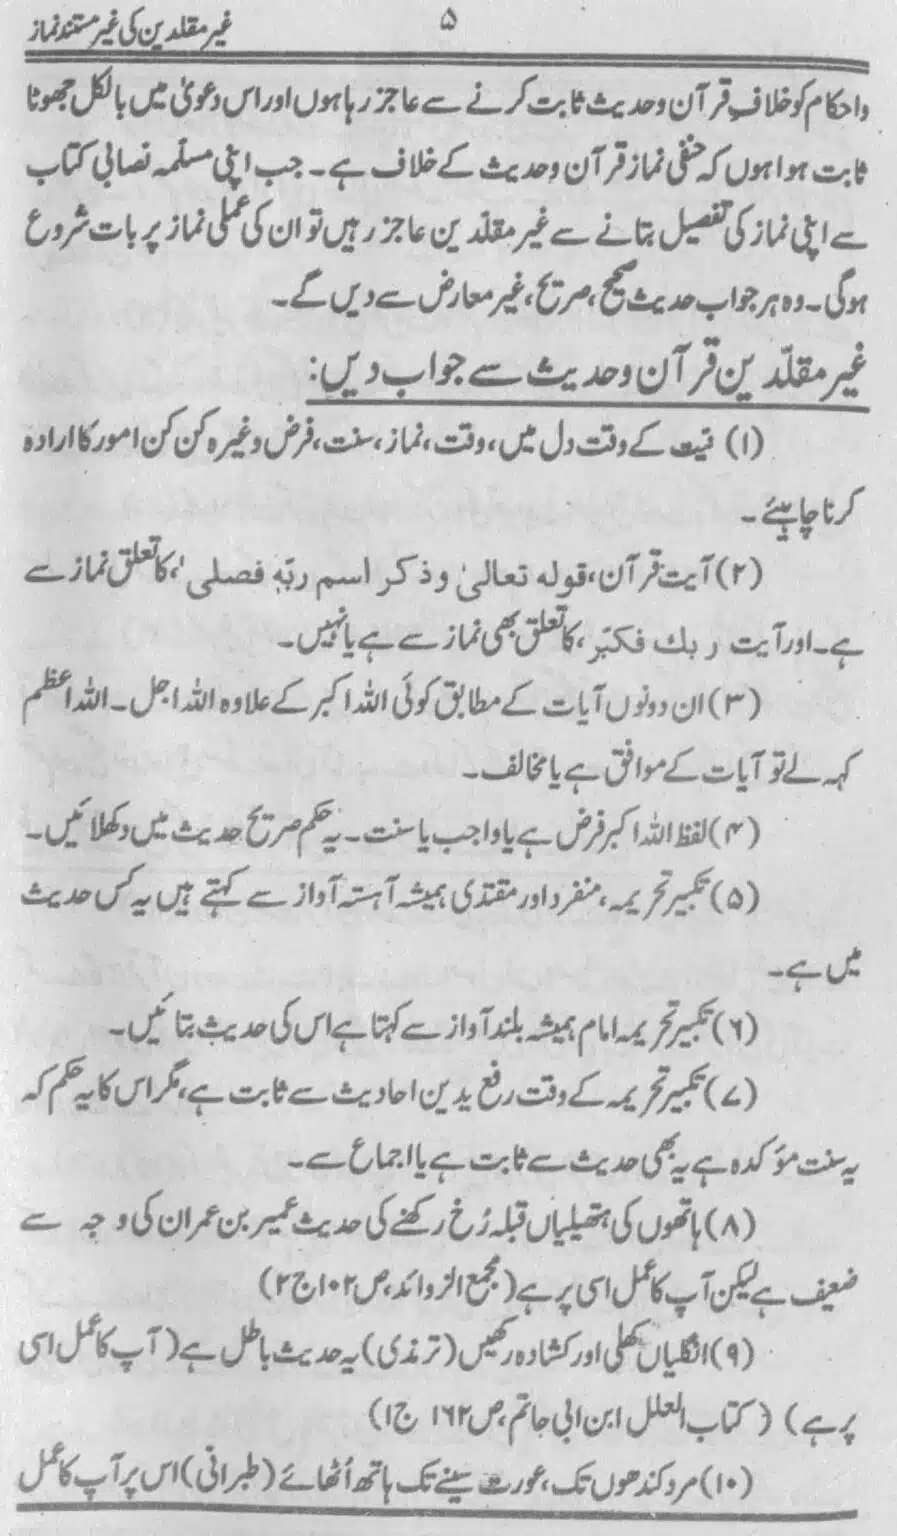 غیر مقلدین کی غیر مستند نماز
۵
واحکام کو خلافِ قرآن وحدیث ثابت کرنے سے عاجز رہا ہوں اور اس دعویٰ میں بالکل جھوٹا
ثابت ہوا ہوں کہ حنفی نماز قرآن وحدیث کے خلاف ہے۔ جب اپنی مسلّمہ نصابی کتاب
سے اپنی نماز کی تفصیل بتانے سے غیر مقلدین عاجز رہیں تو ان کی عملی نماز پر بات شروع
ہوگی۔ وہ ہر جواب حدیث صحیح، صریح، غیر معارض سے دیں گے۔
غیر مقلّدین قرآن وحدیث سے جواب دیں:
(۱) نیت کے وقت دل میں، وقت، نماز، سنت، فرض وغیرہ کن کن امور کا ارادہ
کرنا چاہیئے۔
(۲) آیت قرآن، قوله تعالیٰ وذکر اسم ربّہٖ فصلی ٰ، کا تعلق نماز سے
ہے۔ اور آیت ربك فکبّر، کا تعلق بھی نماز سے ہے یا نہیں۔
(۳) ان دونوں آیات کے مطابق کوئی اللہ اکبر کے علاوہ اللہ اجل۔ اللہ اعظم
کہہ لے تو آیات کے موافق ہے یا مخالف۔
(۴) لفظ اللہ اکبر فرض ہے یا واجب یا سنت۔ یہ حکم صریح حدیث میں دکھلائیں۔
(۵) تکبیر تحریمہ، منفرد اور مقتدی ہمیشہ آہستہ آواز سے کہتے ہیں یہ کس حدیث
میں ہے۔
(۶) تکبیر تحریمہ امام ہمیشہ بلند آواز سے کہتا ہے اس کی حدیث بتائیں۔
(۷) تکبیر تحریمہ کے وقت رفع یدین احادیث سے ثابت ہے، مگر اس کا یہ حکم کہ
یہ سنت مؤکدہ ہے یہ بھی حدیث سے ثابت ہے یا اجماع سے۔
(۸) ہاتھوں کی ہتھیلیاں قبلہ رُخ رکھنے کی حدیث عمیر بن عمران کی وجہ سے
ضعیف ہے لیکن آپ کا عمل اسی پر ہے (مجمع الزوائد، ص ۱۰۲ ج ۲)
(۹) انگلیاں کھلی اور کشادہ رکھیں (ترمذی) یہ حدیث باطل ہے (آپ کا عمل اسی
پر ہے) (کتاب العلل ابن ابی حاتم، ص ۱۶۲ ج ۱)
(۱۰) مرد کندھوں تک، عورت سینے تک ہاتھ اُٹھائے (طبرانی) اس پر آپ کا عمل